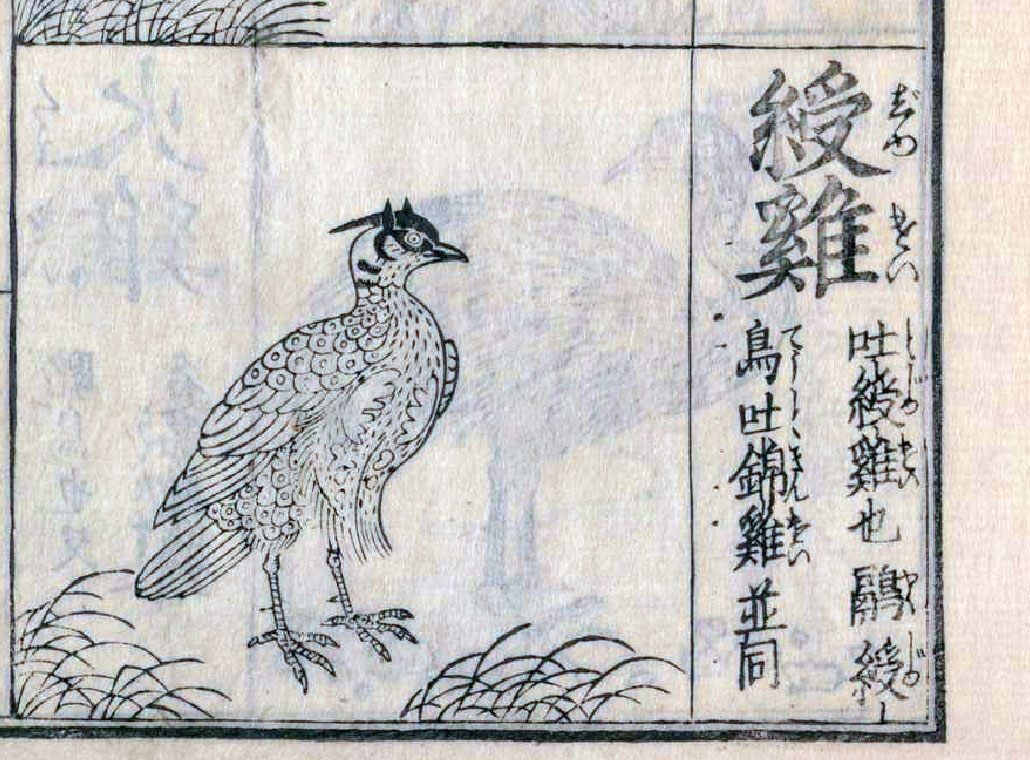 じゆ けい
綬雞
とじゆけい
吐綬雞也鷊綬
てうときんけい
鳥吐錦雞並同